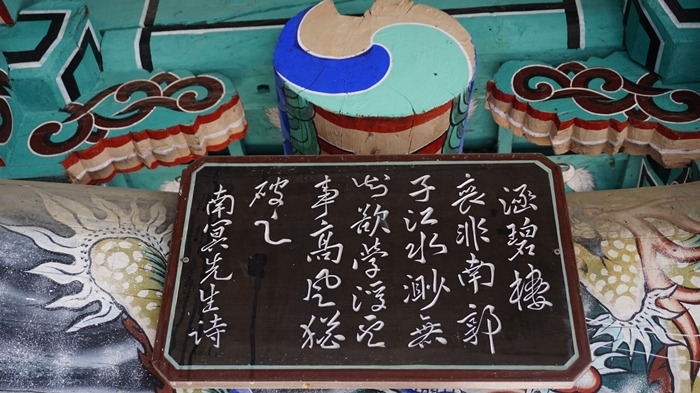 涵碧樓
喪非南郭
子江水渺無
知欲學浮雲
事高風猶
破之
南冥先生詩